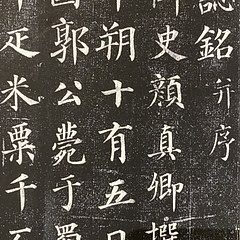 誌銘并序
史顏真卿撰
午朔十有五日
國郭公薨于蜀
疋米粟千石